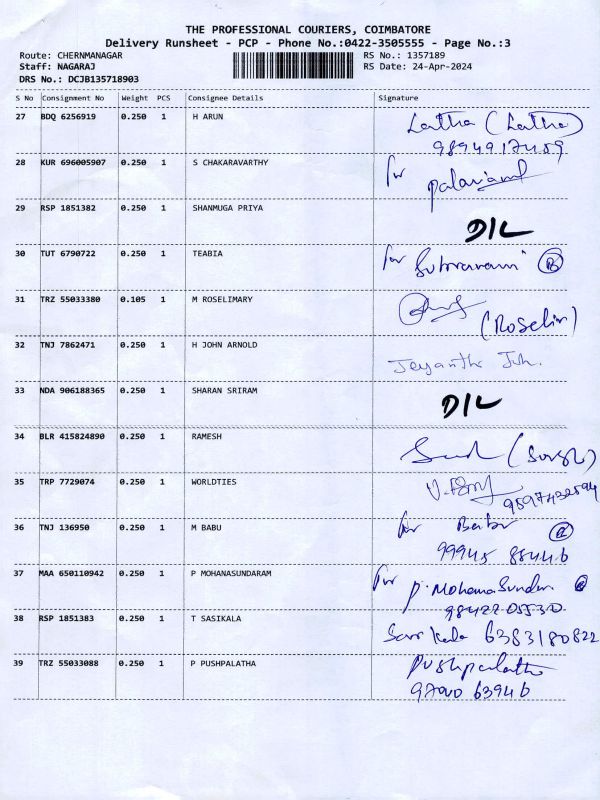 THE PROFESSIONAL COURIERS, COIMBATORE
Delivery Runsheet - PCP - Phone No.:0422-3505555 - Page No.:3
Route: CHERNMANAGAR RS No.: 1357189
Staff: NAGARAJ RS Date: 24-Apr-2024
DRS No.: DCJB135718903
S No Consignment No Weight PCS Consignee Details Signature
27 BDQ 6256919 0.250 1 H ARUN Latha (Latha)
9894917459
28 KUR 696005907 0.250 1 S CHAKARAVARTHY for
29 RSP 1851382 0.250 1 SHANMUGA PRIYA D/L
30 TUT 6790722 0.250 1 TEABIA for
31 TRZ 55033380 0.105 1 M ROSELIMARY
(Roselin)
32 TNJ 7862471 0.250 1 H JOHN ARNOLD
33 NDA 906188365 0.250 1 SHARAN SRIRAM D/L
34 BLR 415824890 0.250 1 RAMESH
35 TRP 7729074 0.250 1 WORLDTIES
9597432594
36 TNJ 136950 0.250 1 M BABU for Babu
99945 88446
37 MAA 650110942 0.250 1 P MOHANASUNDARAM for P. Mohana Sundar
98422 05530
38 RSP 1851383 0.250 1 T SASIKALA 6383180822
39 TRZ 55033088 0.250 1 P PUSHPALATHA Pushpalatha
97900 63946